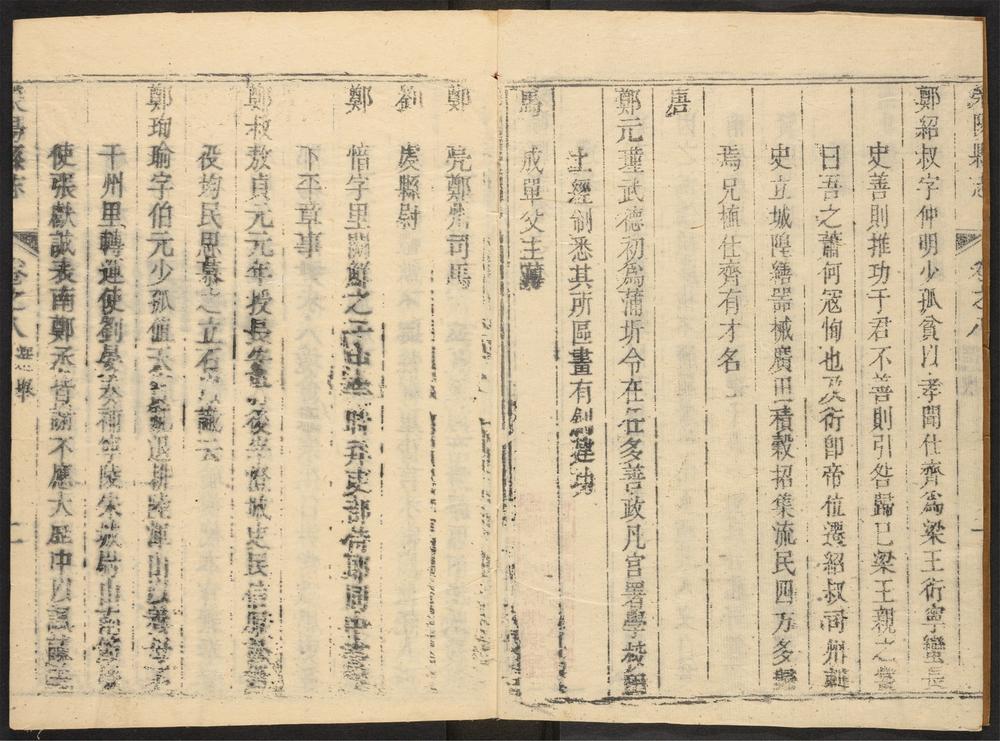 滎陽縣志 卷之八 一
鄭紹叔字仲明少孤貧以孝聞仕齊爲梁王衍寧蠻長
史善則推功于君不善則引咎歸己梁王親之嘗
曰吾之蕭何寇恂也及衍即帝位遷紹叔司州刺
史立城隍繕器械廣田積穀招集流民四方多歸
焉兄植仕齊有才名
唐
鄭元璹武德初爲蒲圻令在任多善政凡官署學校
土經制悉其所區畫有創建功
馬 成單父主簿
鄭 亮鄭州司馬
劉 虔縣尉
鄭 愔字里闕 吏部侍郎同平
下平章事
鄭叔敖貞元元年授長安 後宰澄城吏民
役均民思慕之立石 識云
鄭珣瑜字伯元少孤值 退耕陸渾山
干州里轉運使劉晏奏補寧陵宋城尉山南節
使張獻誠表南鄭丞皆謝不應大歷中以諷諫
卷之八 選舉 二